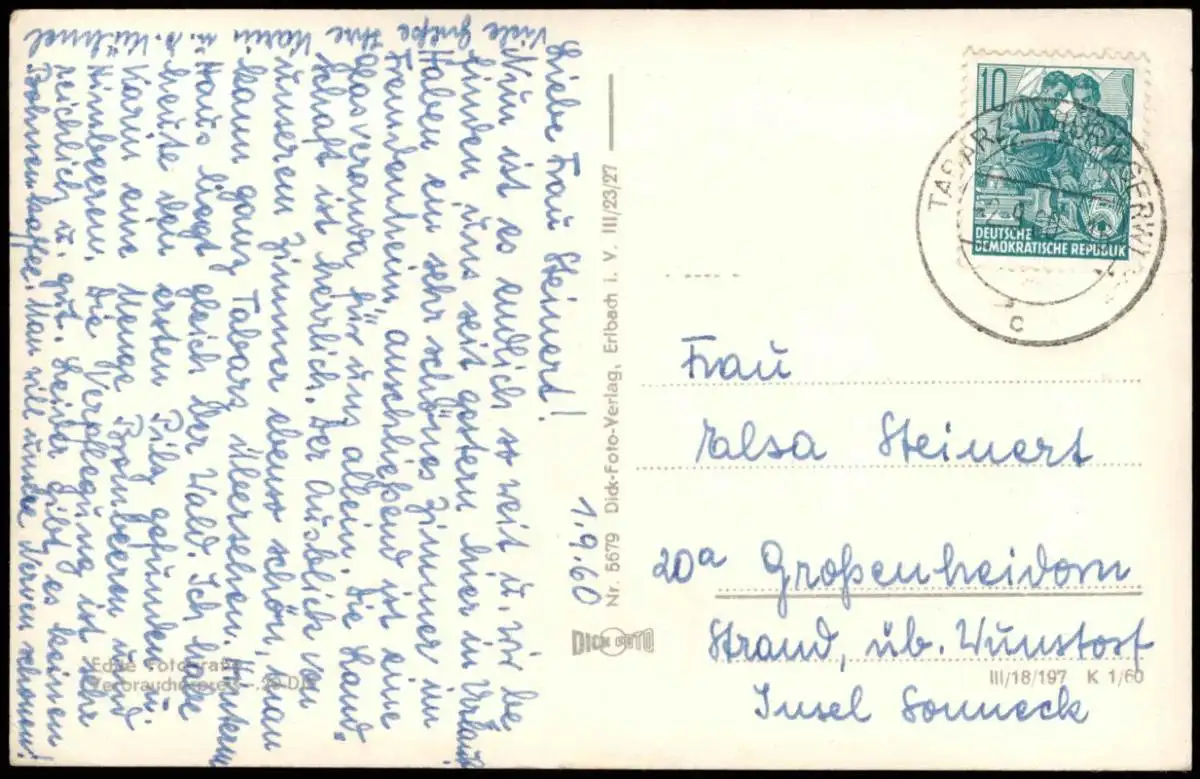 1.9.60
Liebe Frau Steinert!
Nun ist es endlich so weit u. wir be
finden uns seit gestern hier in Urlaub
Haben ein sehr schönes Zimmer im
Fremdenheim, anschließend ist eine
Glasveranda, für uns allein. Die Land-
schaft ist herrlich. Der Ausblick von
unserem Zimmer ebenso schön, man
kann ganz Tabarz übersehen. Hinterm
Haus liegt gleich der Wald. Ich habe
heute den ersten Pilz gefunden u.
Karin eine Menge Brombeeren und
Himbeeren. Die Verpflegung ist sehr
reichlich u. gut. Leider gibt es keinen
Bohnenkaffee. Man will unsre Nerven schonen!
Viele Grüße Ihre Karin u. E. Kühnel
Echte Fotografie
Verbraucherpreis -,20 DM
Nr. 5679 Dick-Foto-Verlag, Erlbach i. V. III/23/27
DICK FOTO
10
5
DEUTSCHE
DEMOKRATISCHE REPUBLIK
TABARZ
c
Frau
Elsa Steinert
20a Großenheidorn
Strand, üb. Wunstorf
III/18/197 K 1/60
Insel Sonneck